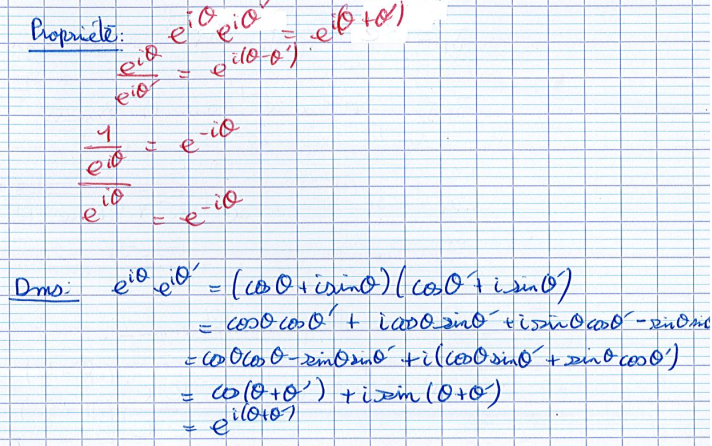 Propriété: e^{iθ} e^{iθ'} = e^{i(θ+θ')}
e^{iθ}/e^{iθ'} = e^{i(θ-θ')}
1/e^{iθ} = e^{-iθ}
\overline{e^{iθ}} = e^{-iθ}
Dms: e^{iθ} e^{iθ'} = (cosθ + isinθ)(cosθ' + isinθ')
= cosθcosθ' + icosθsinθ' + isinθcosθ' - sinθsinθ
= cosθcosθ - sinθsinθ' + i(cosθsinθ' + sinθcosθ')
= cos(θ+θ') + isin(θ+θ')
= e^{i(θ+θ')}